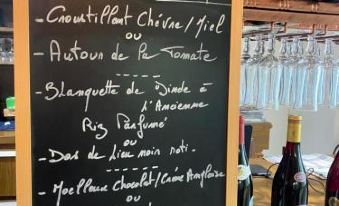 - Croustillant Chèvre / Miel
ou
- Autour de la Tomate
- Blanquette de Dinde à
l'Ancienne
Riz Parfumé
ou
- Dos de Lieu noir roti.
- Moelleux Chocolat / Crème Anglaise
ou